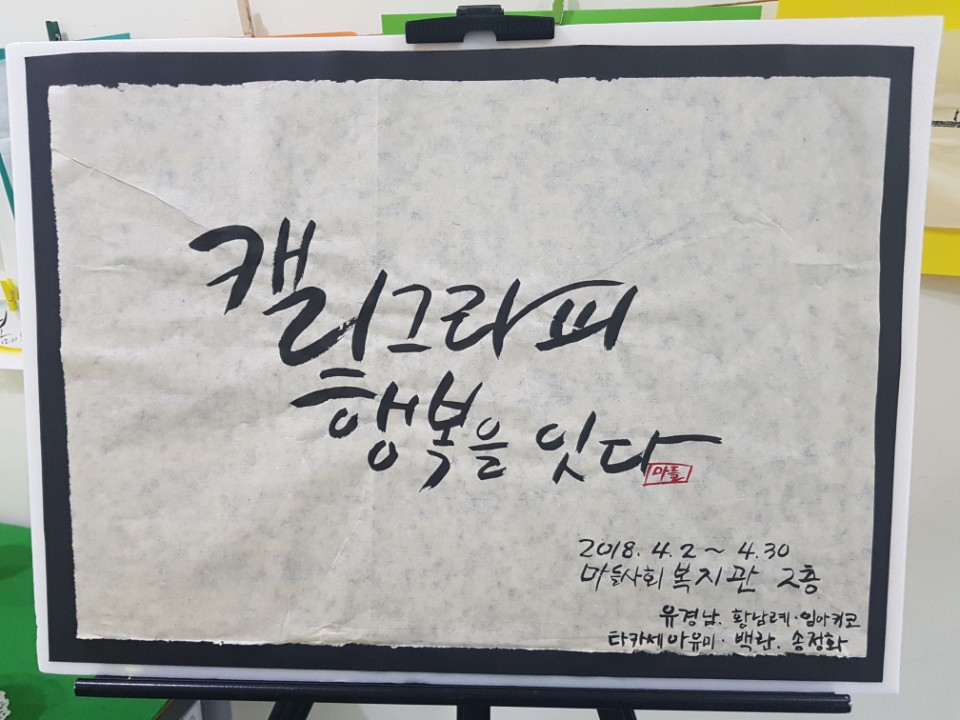 캘리그라피
행복을 잇다
마들
2018. 4. 2 ~ 4. 30
마들사회복지관 2층
유경남. 황남례·임아키코
타카세아유미·백란. 송정화